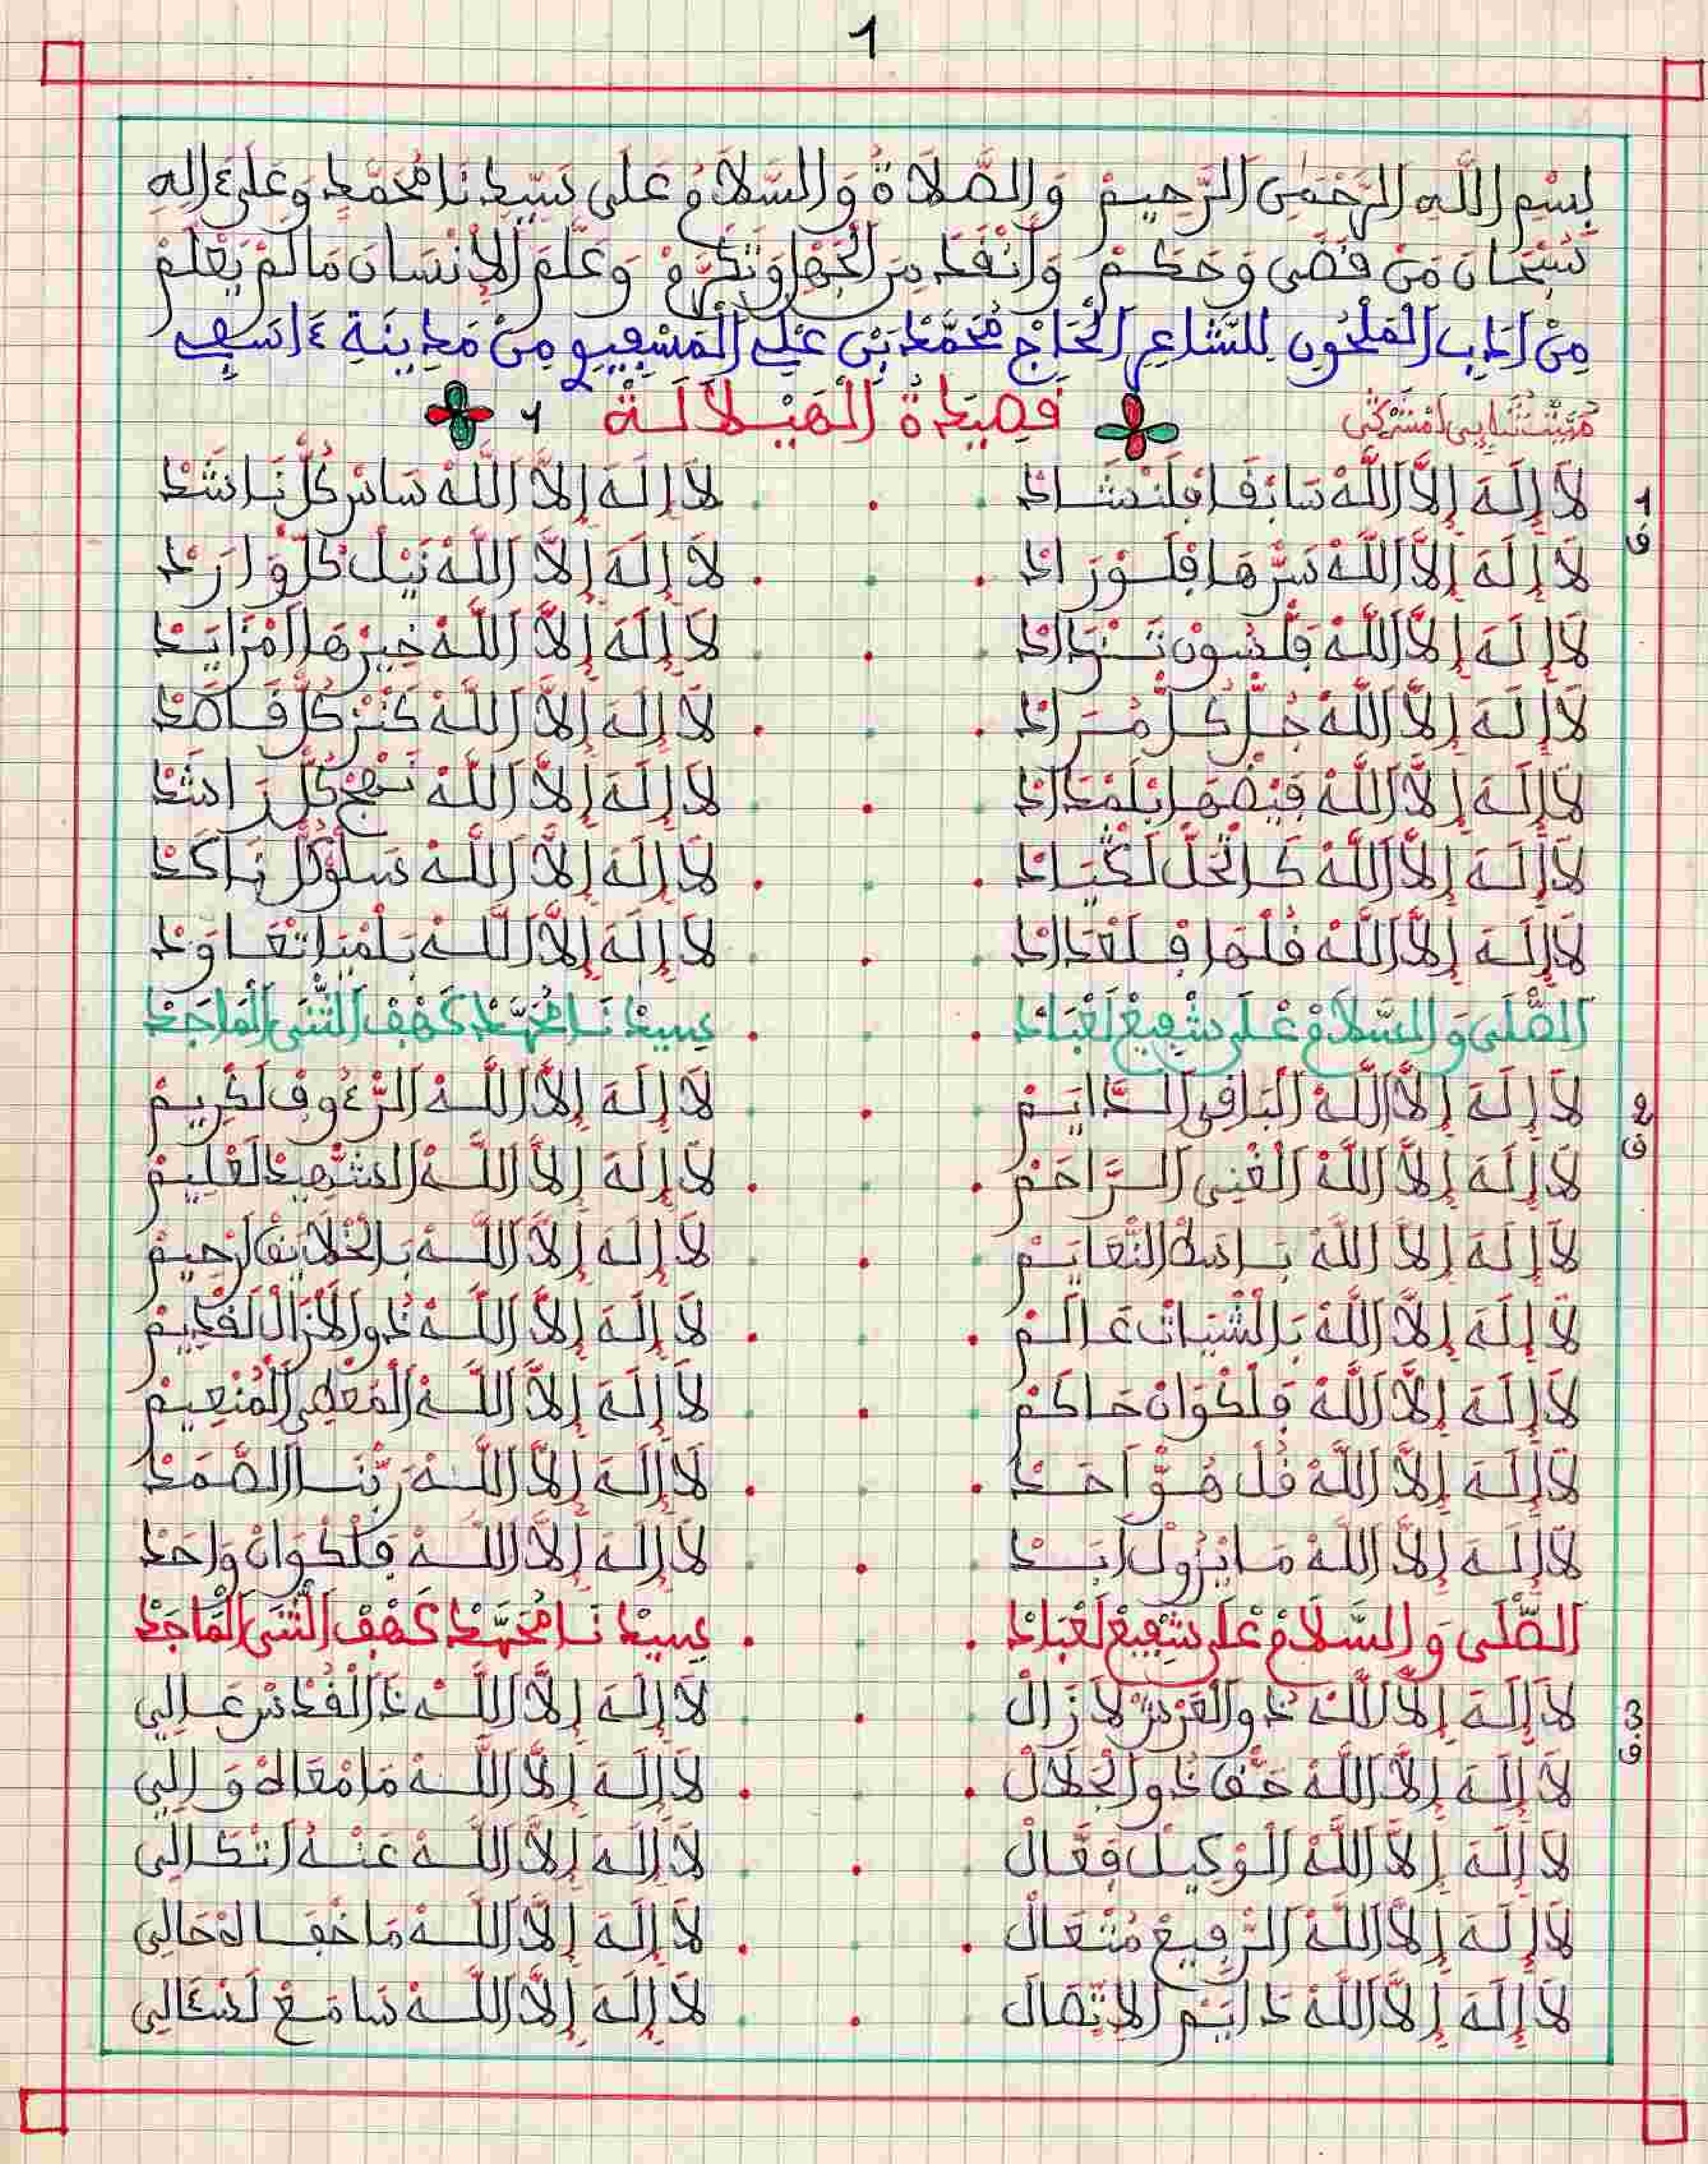 1
بِسْمِ اللَّهِ الرَّحْمَٰنِ الرَّحِيمْ وَالصَّلَاةُ وَالسَّلَامُ عَلَى سَيِّدِنَا مُحَمَّدٍ وَعَلَى ءَالِهِ
سُبْحَانَ مَنْ قَضَى وَحَكَمْ وَأَنْقَدَ مِنَ الْجَهْلِ وَتَكَرَّمْ وَعَلَّمَ الْإِنْسَانَ مَا لَمْ يَعْلَمْ
مِنْ أَدَبِ الْمَلْحُونِ لِلشَّاعِرِ الْحَاجْ مُحَمَّدْ بَنْ عْلِي الْمَسْفِيوِي مِنْ مَدِينَةِ ءَاسَفِي
قَصِيدَةُ الْهَيْلَالَةْ
1 ق
لَا إِلَهَ إِلَّا اللَّهْ سَابْقَا فَلَنْشَادْ . . . لَا إِلَهَ إِلَّا اللَّهْ سَاسْ كُلّْ نَاشَدْ
لَا إِلَهَ إِلَّا اللَّهْ سَرّْهَا فَلَوْرَادْ . . . لَا إِلَهَ إِلَّا اللَّهْ نَيْلْ كُلّْ وَارَدْ
لَا إِلَهَ إِلَّا اللَّهْ فَلْسُونْ تَنْزَادْ . . . لَا إِلَهَ إِلَّا اللَّهْ خِيرْهَا امْزَايَدْ
لَا إِلَهَ إِلَّا اللَّهْ جُلّْ كُلّْ مُرَادْ . . . لَا إِلَهَ إِلَّا اللَّهْ كَنْزْ كُلّْ قَاصَدْ
لَا إِلَهَ إِلَّا اللَّهْ فَيْضْهَا بَلَمْدَادْ . . . لَا إِلَهَ إِلَّا اللَّهْ نَهْجْ كُلّْ رَاشَدْ
لَا إِلَهَ إِلَّا اللَّهْ . . . لَا إِلَهَ إِلَّا اللَّهْ سَلْوْ كُلّْ نَاكَدْ
لَا إِلَهَ إِلَّا اللَّهْ قُلْهَا فَلَعْدَادْ . . . لَا إِلَهَ إِلَّا اللَّهْ
الصّْلَى وَالسَّلَامْ عْلَى شْفِيعْ لَعْبَادْ . . . سِيدْنَا مُحَمَّدْ كَهْفْ الثّْنَى الْمَاجَدْ
2 ق
لَا إِلَهَ إِلَّا اللَّهْ الْبَاقِي الدَّايَمْ . . . لَا إِلَهَ إِلَّا اللَّهْ الرّْءُوفْ لَكْرِيمْ
لَا إِلَهَ إِلَّا اللَّهْ الْغْنِي الرَّاحَمْ . . . لَا إِلَهَ إِلَّا اللَّهْ الشّْهِيدْ لَعْلِيمْ
لَا إِلَهَ إِلَّا اللَّهْ بَاسَطْ النّْعَايَمْ . . . لَا إِلَهَ إِلَّا اللَّهْ بَالْخْلَايَقْ ارْحِيمْ
لَا إِلَهَ إِلَّا اللَّهْ بَالْشْيَاتْ عَالَمْ . . . لَا إِلَهَ إِلَّا اللَّهْ دُو الَازَالْ لَقْدِيمْ
لَا إِلَهَ إِلَّا اللَّهْ فَلَكْوَانْ حَاكَمْ . . . لَا إِلَهَ إِلَّا اللَّهْ الْمَعْطِي الْمُنْعِيمْ
لَا إِلَهَ إِلَّا اللَّهْ قُلْ هُوَّ احَدْ . . . لَا إِلَهَ إِلَّا اللَّهْ رَبّْنَا الصَّمَدْ
لَا إِلَهَ إِلَّا اللَّهْ مَا يْزُولْ ابَدْ . . . لَا إِلَهَ إِلَّا اللَّهْ فَلَكْوَانْ وَاحَدْ
الصّْلَى وَالسَّلَامْ عْلَى شْفِيعْ لَعْبَادْ . . . سِيدْنَا مُحَمَّدْ كَهْفْ الثّْنَى الْمَاجَدْ
3 ق
لَا إِلَهَ إِلَّا اللَّهْ دُو الْعَرْشْ لَا زَالْ . . . لَا إِلَهَ إِلَّا اللَّهْ دَا الْقُدْسْ عَالِي
لَا إِلَهَ إِلَّا اللَّهْ حَقَّا دُو الْجَلَالْ . . . لَا إِلَهَ إِلَّا اللَّهْ مَا مْعَاهْ وَالِي
لَا إِلَهَ إِلَّا اللَّهْ الْوْكِيلْ فَعَّالْ . . . لَا إِلَهَ إِلَّا اللَّهْ عَنُّه اتْكَالِي
لَا إِلَهَ إِلَّا اللَّهْ الرّْفِيعْ مُتْعَالْ . . . لَا إِلَهَ إِلَّا اللَّهْ مَا خْفَالْهْ حَالِي
لَا إِلَهَ إِلَّا اللَّهْ دَايَمْ الِاتِّصَالْ . . . لَا إِلَهَ إِلَّا اللَّهْ سَامَعْ لَسْءَالِي